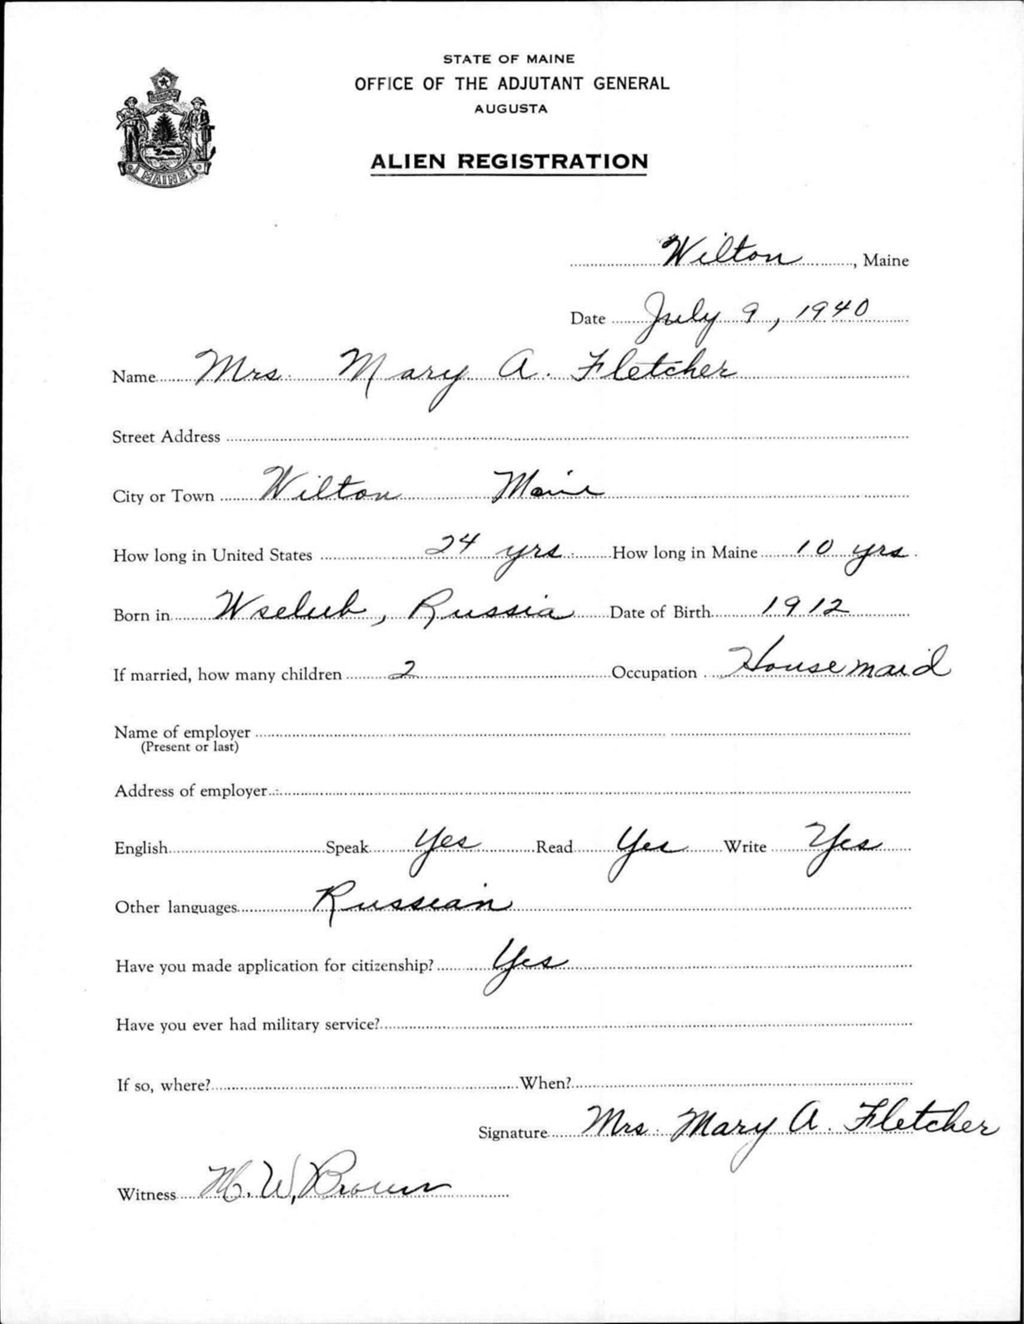 STATE OF MAINE
OFFICE OF THE ADJUTANT GENERAL
AUGUSTA
ALIEN REGISTRATION
MAINE
Wilton, Maine
Date July 9, 1940
Name Mrs. Mary A. Fletcher
Street Address
City or Town Wilton Maine
How long in United States 24 yrs. How long in Maine 10 yrs.
Born in Wselub, Russia Date of Birth 1912
If married, how many children 2 Occupation Housemaid
Name of employer
(Present or last)
Address of employer
English Speak Yes Read Yes Write Yes
Other languages Russian
Have you made application for citizenship? Yes
Have you ever had military service?
If so, where? When?
Signature Mrs. Mary A. Fletcher
Witness M. W. Brown